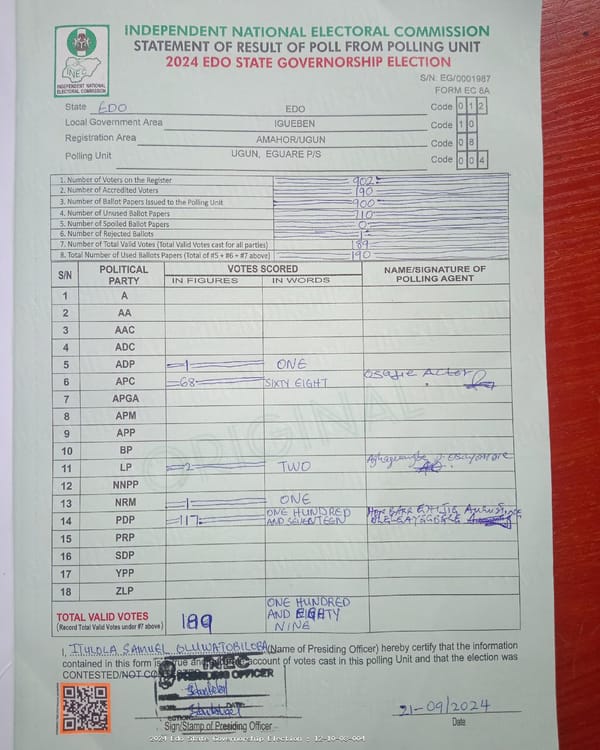 INDEPENDENT NATIONAL ELECTORAL COMMISSION
STATEMENT OF RESULT OF POLL FROM POLLING UNIT
2024 EDO STATE GOVERNORSHIP ELECTION
INEC
INDEPENDENT NATIONAL
ELECTORAL COMMISSION
S/N: EG/0001987
FORM EC 8A
State EDO EDO Code 0 1 2
Local Government Area IGUEBEN Code 1 0
Registration Area AMAHOR/UGUN Code 0 8
Polling Unit UGUN, EGUARE P/S Code 0 0 4
1. Number of Voters on the Register 902
2. Number of Accredited Voters 190
3. Number of Ballot Papers Issued to the Polling Unit 900
4. Number of Unused Ballot Papers 710
5. Number of Spoiled Ballot Papers 0
6. Number of Rejected Ballots 1
7. Number of Total Valid Votes (Total Valid Votes cast for all parties) 189
8. Total Number of Used Ballots Papers (Total of #5 + #6 + #7 above) 190
S/N POLITICAL PARTY VOTES SCORED NAME/SIGNATURE OF POLLING AGENT
IN FIGURES IN WORDS
1 A
2 AA
3 AAC
4 ADC
5 ADP 1 ONE
6 APC 68 SIXTY EIGHT
7 APGA
8 APM
9 APP
10 BP
11 LP 2 TWO
12 NNPP
13 NRM 1 ONE
14 PDP 117 ONE HUNDRED AND SEVENTEEN
15 PRP
16 SDP
17 YPP
18 ZLP
ORIGINAL
TOTAL VALID VOTES 189 ONE HUNDRED AND EIGHTY NINE
(Record Total Valid Votes under #7 above)
I, ITULOLA SAMUEL OLUWATOBILOBA (Name of Presiding Officer) hereby certify that the information
contained in this form is true and account of votes cast in this polling Unit and that the election was
CONTESTED/NOT
INEC
PRESIDING OFFICER
DATE:
21-09/2024
Sign/Stamp of Presiding Officer Date
2024 Edo State Governorship Election : 12-10-08-004